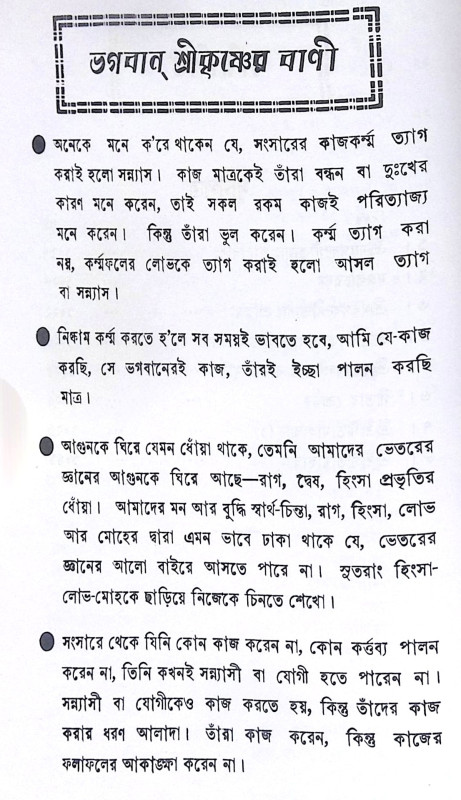 ভগবান্ শ্রীকৃষ্ণের বাণী
● অনেকে মনে ক'রে থাকেন যে, সংসারের কাজকর্ম্ম ত্যাগ
করাই হলো সন্ন্যাস। কাজ মাত্রকেই তাঁরা বন্ধন বা দুঃখের
কারণ মনে করেন, তাই সকল রকম কাজই পরিত্যাজ্য
মনে করেন। কিন্তু তাঁরা ভুল করেন। কর্ম্ম ত্যাগ করা
নয়, কর্ম্মফলের লোভকে ত্যাগ করাই হলো আসল ত্যাগ
বা সন্ন্যাস।
● নিষ্কাম কর্ম্ম করতে হ'লে সব সময়ই ভাবতে হবে, আমি যে-কাজ
করছি, সে ভগবানেরই কাজ, তাঁরই ইচ্ছা পালন করছি
মাত্র।
● আগুনকে ঘিরে যেমন ধোঁয়া থাকে, তেমনি আমাদের ভেতরের
জ্ঞানের আগুনকে ঘিরে আছে—রাগ, দ্বেষ, হিংসা প্রভৃতির
ধোঁয়া। আমাদের মন আর বুদ্ধি স্বার্থ-চিন্তা, রাগ, হিংসা, লোভ
আর মোহের দ্বারা এমন ভাবে ঢাকা থাকে যে, ভেতরের
জ্ঞানের আলো বাইরে আসতে পারে না। সুতরাং হিংসা-
লোভ-মোহকে ছাড়িয়ে নিজেকে চিনতে শেখো।
● সংসারে থেকে যিনি কোন কাজ করেন না, কোন কর্ত্তব্য পালন
করেন না, তিনি কখনই সন্ন্যাসী বা যোগী হতে পারেন না।
সন্ন্যাসী বা যোগীকেও কাজ করতে হয়, কিন্তু তাঁদের কাজ
করার ধরণ আলাদা। তাঁরা কাজ করেন, কিন্তু কাজের
ফলাফলের আকাঙ্ক্ষা করেন না।